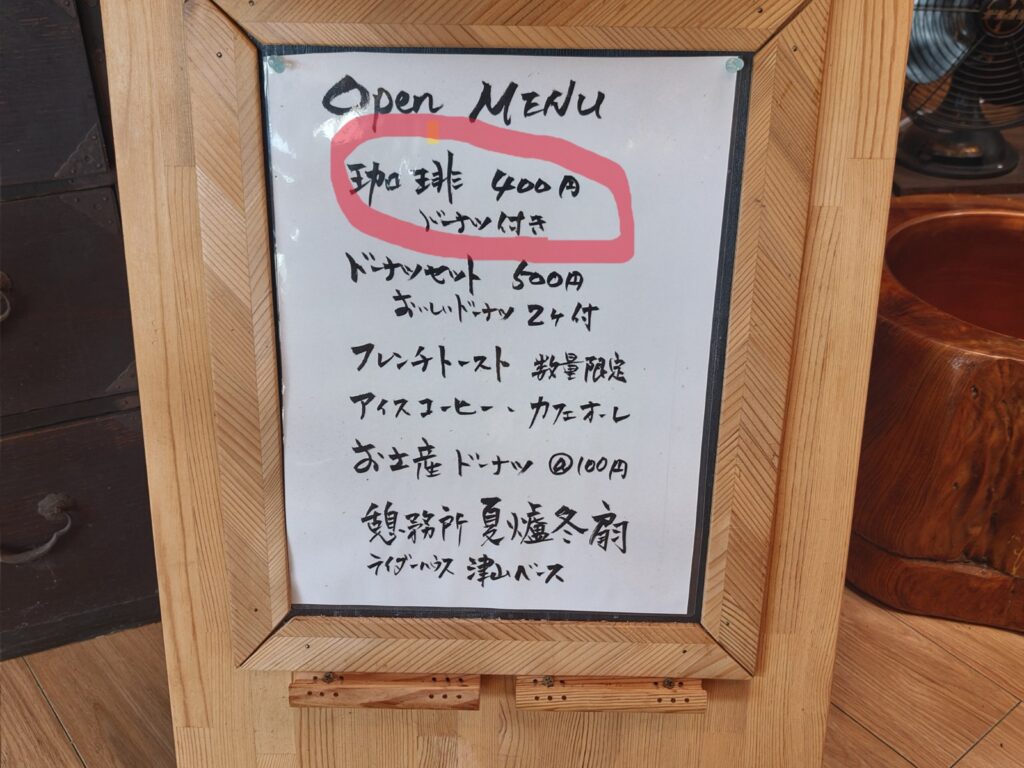 Open MENU
珈琲 400円
ドーナツ付き
ドーナツセット 500円
おいしいドーナツ 2ケ付
フレンチトースト 数量限定
アイスコーヒー・カフェオーレ
お土産ドーナツ @100円
憩務所 夏爐冬扇
ライダーハウス 津山ベース